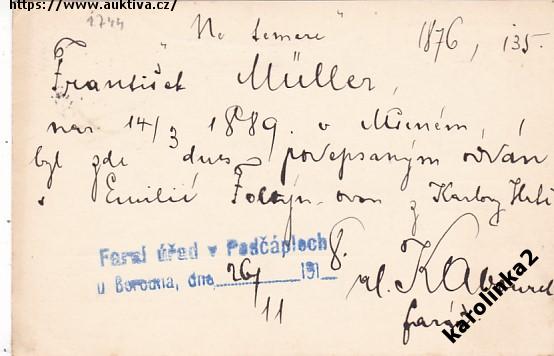 https://www.auktiva.cz/
1744
"Ne temere" 1876, 135.
František Müller,
nar 14/3 1889. v Mšeném,
byl zde dnes podepsaným oddán
s Emilií z Karlovy Huti
Farní úřad v Počáplech
u Berouna, dne 26/11 1918.
farář
karolinka2